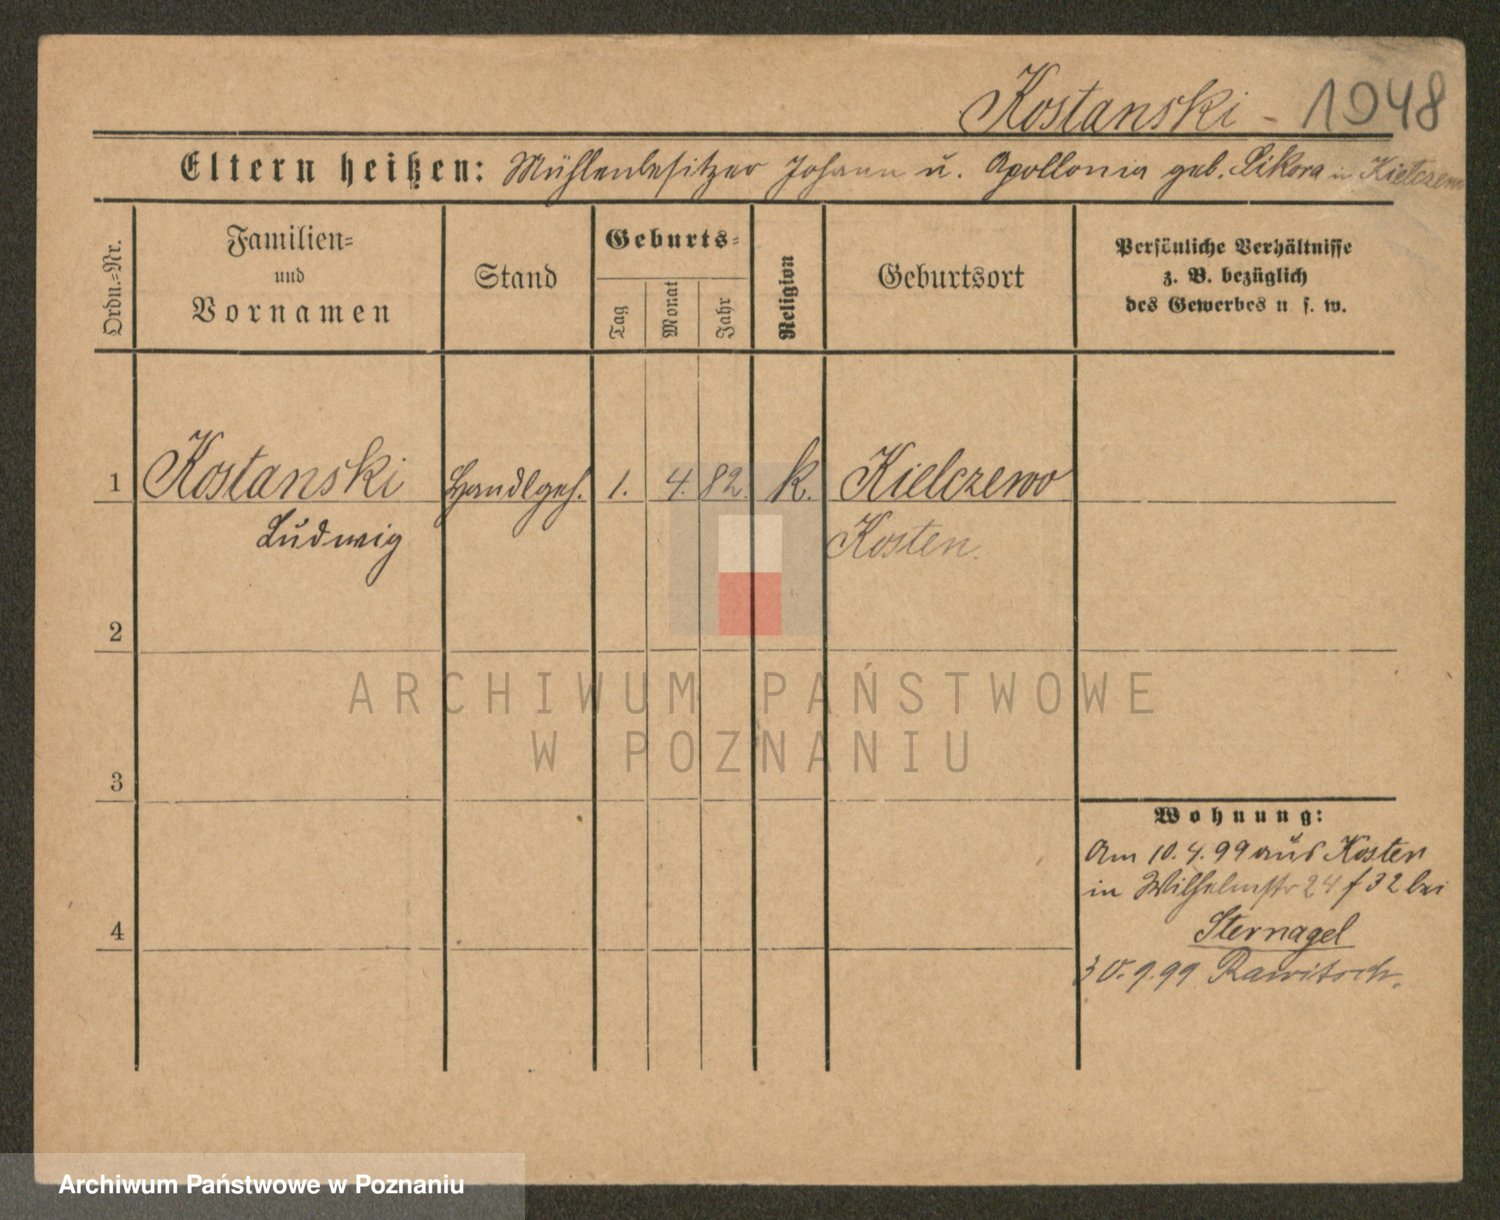 Kostanski - 1948
Eltern heißen: Mühlenbesitzer Johann u. Apollonia geb. Sikora in Kielczewo
Ordn.=Nr.
Familien=
und
Vornamen
Stand
Geburts=
Tag
Monat
Jahr
Religion
Geburtsort
Persönliche Verhältnisse
z. B. bezüglich
des Gewerbes u. s. w.
1 Kostanski Handlgeh. 1. 4. 82. k. Kielczewo
Ludwig Kosten.
2
ARCHIWUM PAŃSTWOWE
W POZNANIU
3
Wohnung:
Am 10.4.99 aus Kosten
in Wilhelmstr 24 f 32 bei
4
Sternagel
30.9.99 Rawitsch.
Archiwum Państwowe w Poznaniu